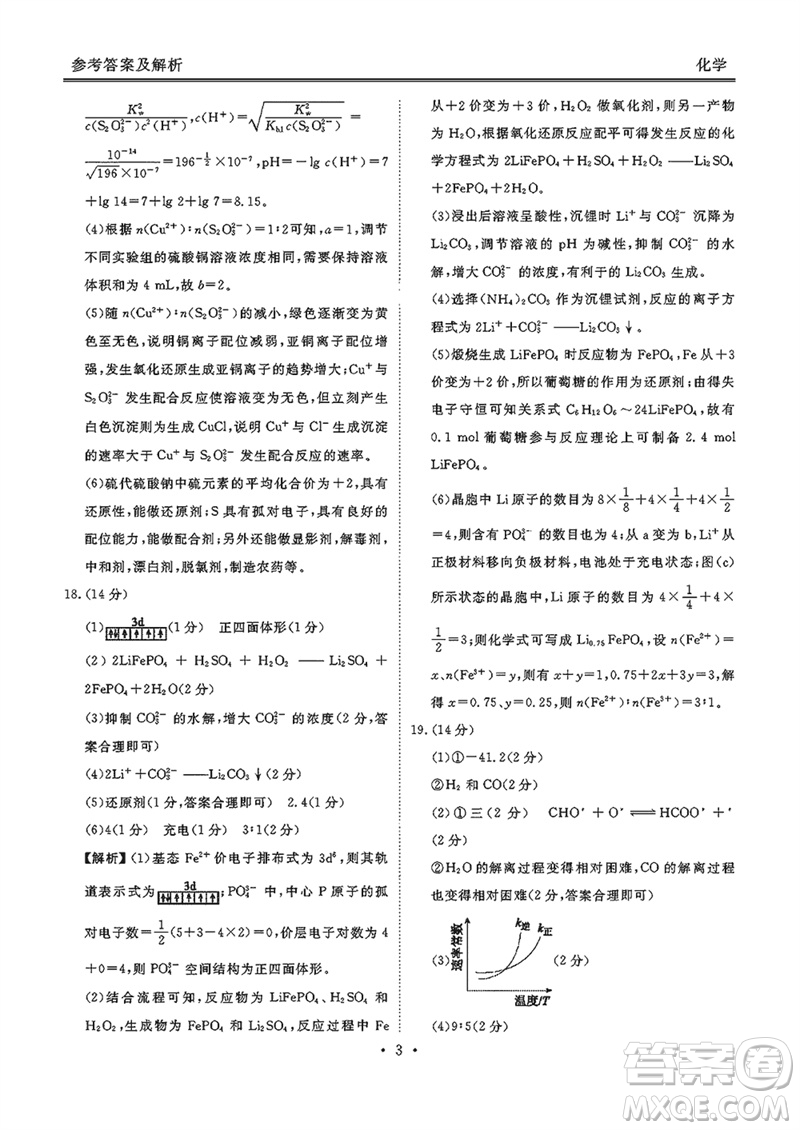 参考答案及解析
化学
K²w / c(S₂O₃²⁻)c²(H⁺), c(H⁺)=√(K²w / Kh1 c(S₂O₃²⁻)) =
10⁻¹⁴ / (√196×10⁻⁷) =196^(-1/2)×10⁻⁷,pH=−lg c(H⁺)=7
+lg 14=7+lg 2+lg 7=8.15。
(4)根据 n(Cu²⁺)∶n(S₂O₃²⁻)=1∶2可知,a=1,调节
不同实验组的硫酸铜溶液浓度相同,需要保持溶液
体积和为 4 mL,故 b=2。
(5)随 n(Cu²⁺)∶n(S₂O₃²⁻)的减小,绿色逐渐变为黄
色至无色,说明铜离子配位减弱,亚铜离子配位增
强,发生氧化还原生成亚铜离子的趋势增大;Cu⁺与
S₂O₃²⁻ 发生配合反应使溶液变为无色,但立刻产生
白色沉淀可知生成 CuCl,说明 Cu⁺ 与 Cl⁻ 生成沉淀
的速率大于 Cu⁺ 与 S₂O₃²⁻ 发生配合反应的速率。
(6)硫代硫酸钠中硫元素的平均化合价为+2,具有
还原性,能做还原剂;S 具有孤对电子,具有良好的
配位能力,能做定影剂,还能做鞣革剂,解毒剂,
中和剂,漂白剂,脱氯剂,制造农药等。
18.(14 分)
(1) 3d ↑↓ ↑ ↑ ↑ ↑ (1 分) 正四面体形(1 分)
(2) 2LiFePO₄ + H₂SO₄ + H₂O₂ —— Li₂SO₄ +
2FePO₄+2H₂O(2 分)
(3)抑制 CO₃²⁻ 的水解,增大 CO₃²⁻ 的浓度(2 分,答
案合理即可)
(4)2Li⁺+CO₃²⁻ ——Li₂CO₃↓(2 分)
(5)还原剂(1 分,答案合理即可) 2.4(1 分)
(6)4(1 分) 充电(1 分) 3∶1(2 分)
【解析】(1)基态 Fe²⁺价电子排布式为 3d⁶,其轨
道表示式为 3d ↑↓ ↑ ↑ ↑ ↑ ;PO₄³⁻中,中心 P 原子的孤
对电子数=1/2(5+3−4×2)=0,价层电子对数为 4
+0=4,则 PO₄³⁻ 空间结构为正四面体形。
(2)结合流程可知,反应物为 LiFePO₄、H₂SO₄ 和
H₂O₂,生成物为 FePO₄ 和 Li₂SO₄,反应过程中 Fe
从+2 价变为+3 价,H₂O₂ 做氧化剂,则另一产物
为 H₂O,根据氧化还原反应配平可得发生反应的化
学方程式为 2LiFePO₄+H₂SO₄+H₂O₂ ——Li₂SO₄
+2FePO₄+2H₂O。
(3)浸出后溶液呈酸性,沉锂时 Li⁺与 CO₃²⁻ 沉降为
Li₂CO₃,调节溶液的 pH 为碱性,抑制 CO₃²⁻ 的水
解,增大 CO₃²⁻ 的浓度,有利于 Li₂CO₃ 生成。
(4)选择(NH₄)₂CO₃ 为沉锂试剂,反应的离子方
程式为 2Li⁺+CO₃²⁻ ——Li₂CO₃↓。
(5)煅烧生成 LiFePO₄ 时反应物为 FePO₄,Fe 从+3
价变为+2 价,所以葡萄糖的作用为还原剂;由得失
电子守恒可知关系式 C₆H₁₂O₆～24LiFePO₄,故有
0.1 mol 葡萄糖参与反应理论上可制备 2.4 mol
LiFePO₄。
(6)晶胞中 Li 原子的数目为 8×1/8+4×1/4+4×1/2
=4,则含有 PO₄³⁻ 的数目也为 4;从 a 变为 b,Li⁺从
正极材料移向负极材料,电池处于充电状态;图(c)
所示状态的晶胞中,Li 原子的数目为 4×1/4+4×
1/2=3;则化学式可写成 Li₀.₇₅FePO₄,设 n(Fe²⁺)=
x、n(Fe³⁺)=y,则有 x+y=1,0.75+2x+3y=3,解
得 x=0.75、y=0.25,所以 n(Fe²⁺)∶n(Fe³⁺)=3∶1。
19.(14 分)
(1)①−41.2(2 分)
②H₂ 和 CO(2 分)
(2)①三(2 分) CHO*+O*⇌HCOO*+*
(2 分)
②H₂O 的解离过程变得相对困难,CO 的解离过程
也变得相对困难(2 分,答案合理即可)
(3) 速率常数 k逆 k正 温度/T (2 分)
(4)9∶5(2 分)
· 3 ·
答案卷
MXQE.COM